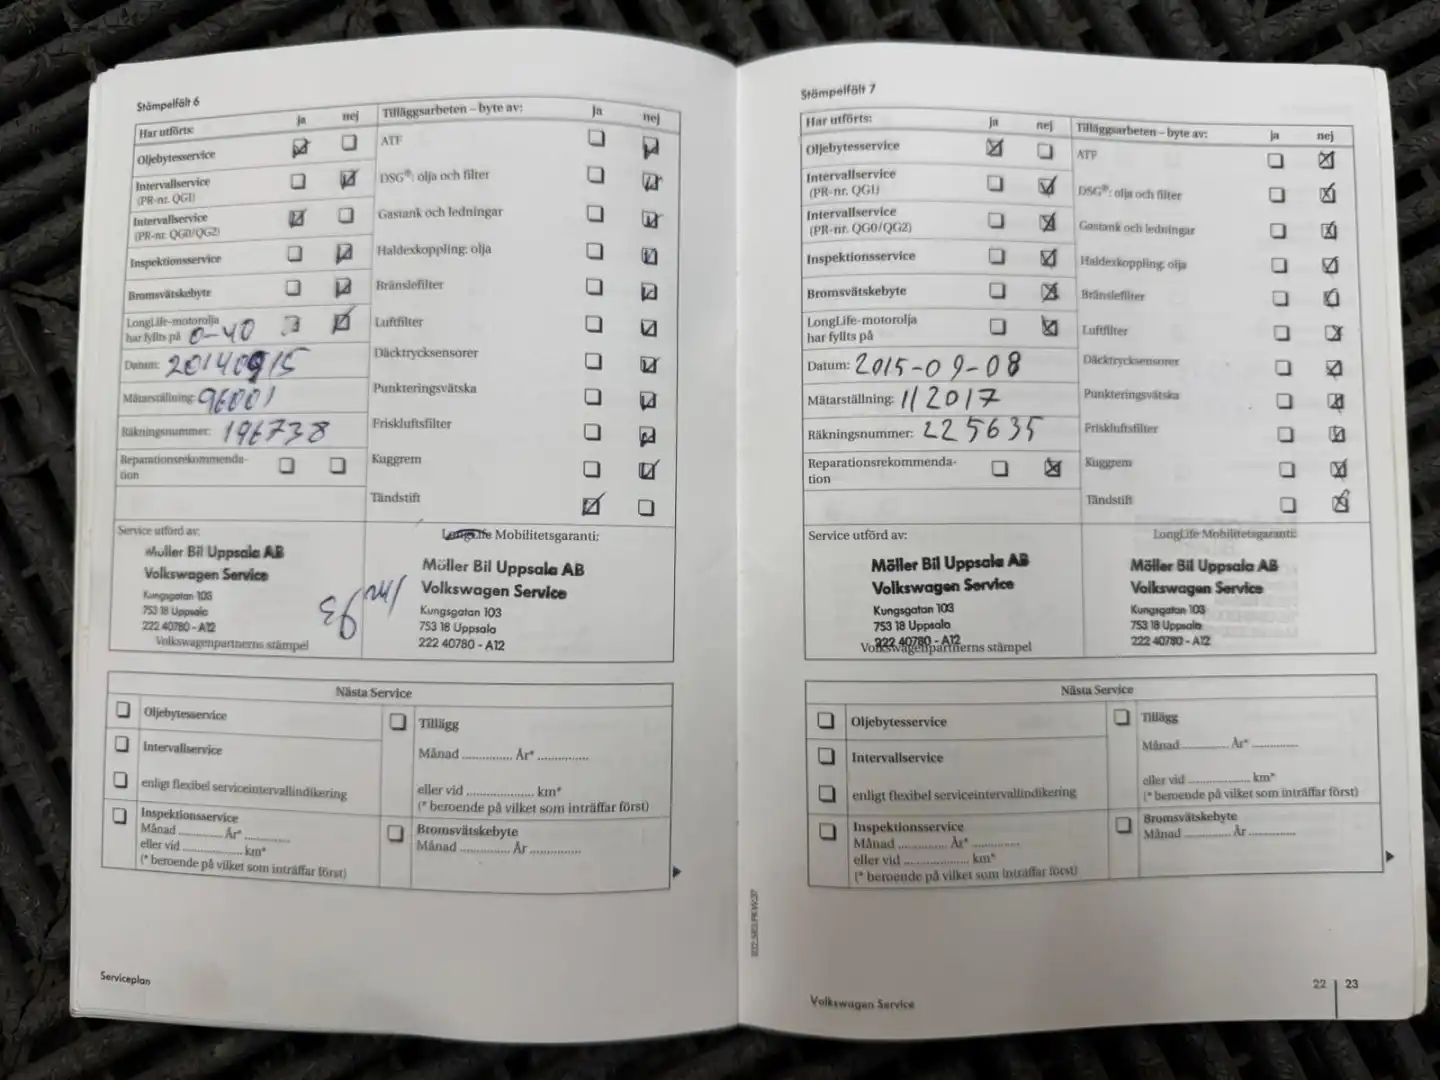 Stämpelfält 6
Har utförts: ja nej
Oljebytesservice
Intervallservice
(PR-nr. QG1)
Intervallservice
(PR-nr. QG0/QG2)
Inspektionsservice
Bromsvätskebyte
LongLife-motorolja
har fyllts på 0-40
Datum: 20140915
Mätarställning: 96001
Räkningsnummer: 196738
Reparationsrekommenda-
tion
Tilläggsarbeten – byte av: ja nej
ATF
DSG®: olja och filter
Gastank och ledningar
Haldexkoppling: olja
Bränslefilter
Luftfilter
Däcktrycksensorer
Punkteringsvätska
Friskluftsfilter
Kuggrem
Tändstift
Service utförd av:
Möller Bil Uppsala AB
Volkswagen Service
Kungsgatan 103
753 18 Uppsala
222 40780 - A12
Volkswagenpartnerns stämpel
LongLife Mobilitetsgaranti:
Möller Bil Uppsala AB
Volkswagen Service
Kungsgatan 103
753 18 Uppsala
222 40780 - A12
Nästa Service
Oljebytesservice
Intervallservice
enligt flexibel serviceintervallindikering
Inspektionsservice
Månad ............ År* ............
eller vid .................. km*
(* beroende på vilket som inträffar först)
Tillägg
Månad ............. År* .............
eller vid .................. km*
(* beroende på vilket som inträffar först)
Bromsvätskebyte
Månad ............. År .............
Serviceplan
Stämpelfält 7
Har utförts: ja nej
Oljebytesservice
Intervallservice
(PR-nr. QG1)
Intervallservice
(PR-nr. QG0/QG2)
Inspektionsservice
Bromsvätskebyte
LongLife-motorolja
har fyllts på
Datum: 2015-09-08
Mätarställning: 112017
Räkningsnummer: 225635
Reparationsrekommenda-
tion
Tilläggsarbeten – byte av: ja nej
ATF
DSG®: olja och filter
Gastank och ledningar
Haldexkoppling: olja
Bränslefilter
Luftfilter
Däcktrycksensorer
Punkteringsvätska
Friskluftsfilter
Kuggrem
Tändstift
Service utförd av:
Möller Bil Uppsala AB
Volkswagen Service
Kungsgatan 103
753 18 Uppsala
222 40780 - A12
Volkswagenpartnerns stämpel
LongLife Mobilitetsgaranti:
Möller Bil Uppsala AB
Volkswagen Service
Kungsgatan 103
753 18 Uppsala
222 40780 - A12
Nästa Service
Oljebytesservice
Intervallservice
enligt flexibel serviceintervallindikering
Inspektionsservice
Månad ............ År* ............
eller vid .................. km*
(* beroende på vilket som inträffar först)
Tillägg
Månad ............. År* .............
eller vid .................. km*
(* beroende på vilket som inträffar först)
Bromsvätskebyte
Månad ............. År .............
Volkswagen Service
22 23